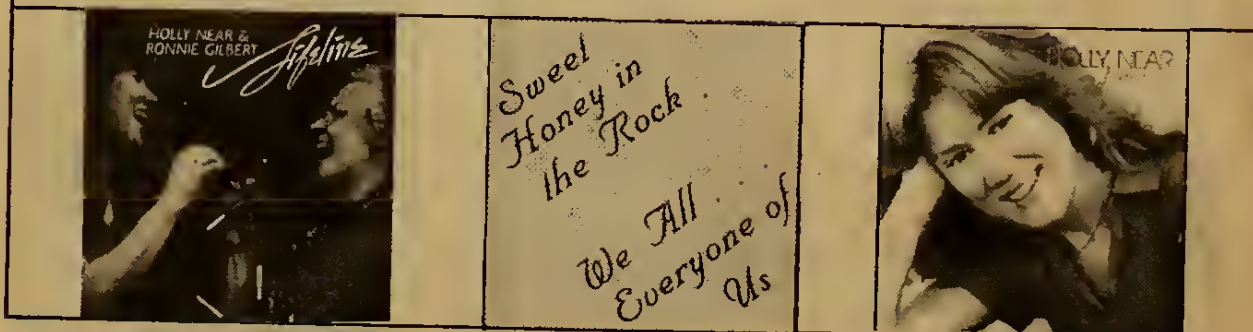 HOLLY NEAR &
RONNIE GILBERT
Lifeline
Sweet
Honey in
the Rock
We All
Everyone of
Us
HOLLY NEAR